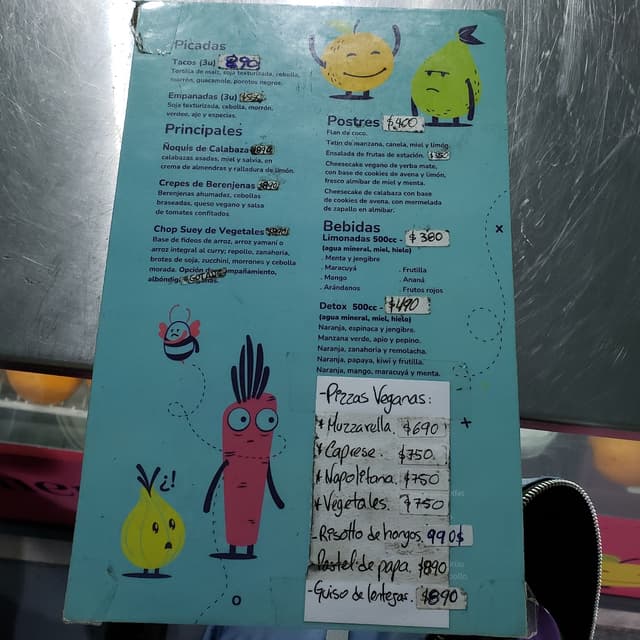 Picadas
Tacos (3u) 890
Tortilla de maíz, soja texturizada, cebolla,
morrón, guacamole, porotos negros.
Empanadas (3u)
Soja texturizada, cebolla, morrón,
verdeo, ajo y especias.
Principales
Ñoquis de Calabaza
calabazas asadas, miel y salvia, en
crema de almendras y ralladura de limón.
Crepes de Berenjenas
Berenjenas ahumadas, cebollas
braseadas, queso vegano y salsa
de tomates confitados.
Chop Suey de Vegetales
Base de fideos de arroz, arroz yamaní o
arroz integral al curry; repollo, zanahoria,
brotes de soja, zucchini, morrones y cebolla
morada. Opción
albóndig
¿!
o
Postres $460
Flan de coco.
Tatin de manzana, canela, miel y limón.
Ensalada de frutas de estación.
Cheesecake vegano de yerba mate,
con base de cookies de avena y limón,
fresco almíbar de miel y menta.
Cheesecake de calabaza con base
de cookies de avena, con mermelada
de zapallo en almíbar.
Bebidas
Limonadas 500cc - $ 380
(agua mineral, miel, hielo)
. Menta y jengibre
. Maracuyá . Frutilla
. Mango . Ananá
. Arándanos . Frutos rojos
Detox 500cc - $490
(agua mineral, miel, hielo)
Naranja, espinaca y jengibre.
Manzana verde, apio y pepino.
Naranja, zanahoria y remolacha.
Naranja, papaya, kiwi y frutilla.
Naranja, mango, maracuyá y menta.
x
+
- Pizzas Veganas:
* Muzzarella. $690
* Caprese. $750
* Napolitana. $750
* Vegetales. $750
- Risotto de hongos. 990$
- Pastel de papa. $890
- Guiso de lentejas. $890